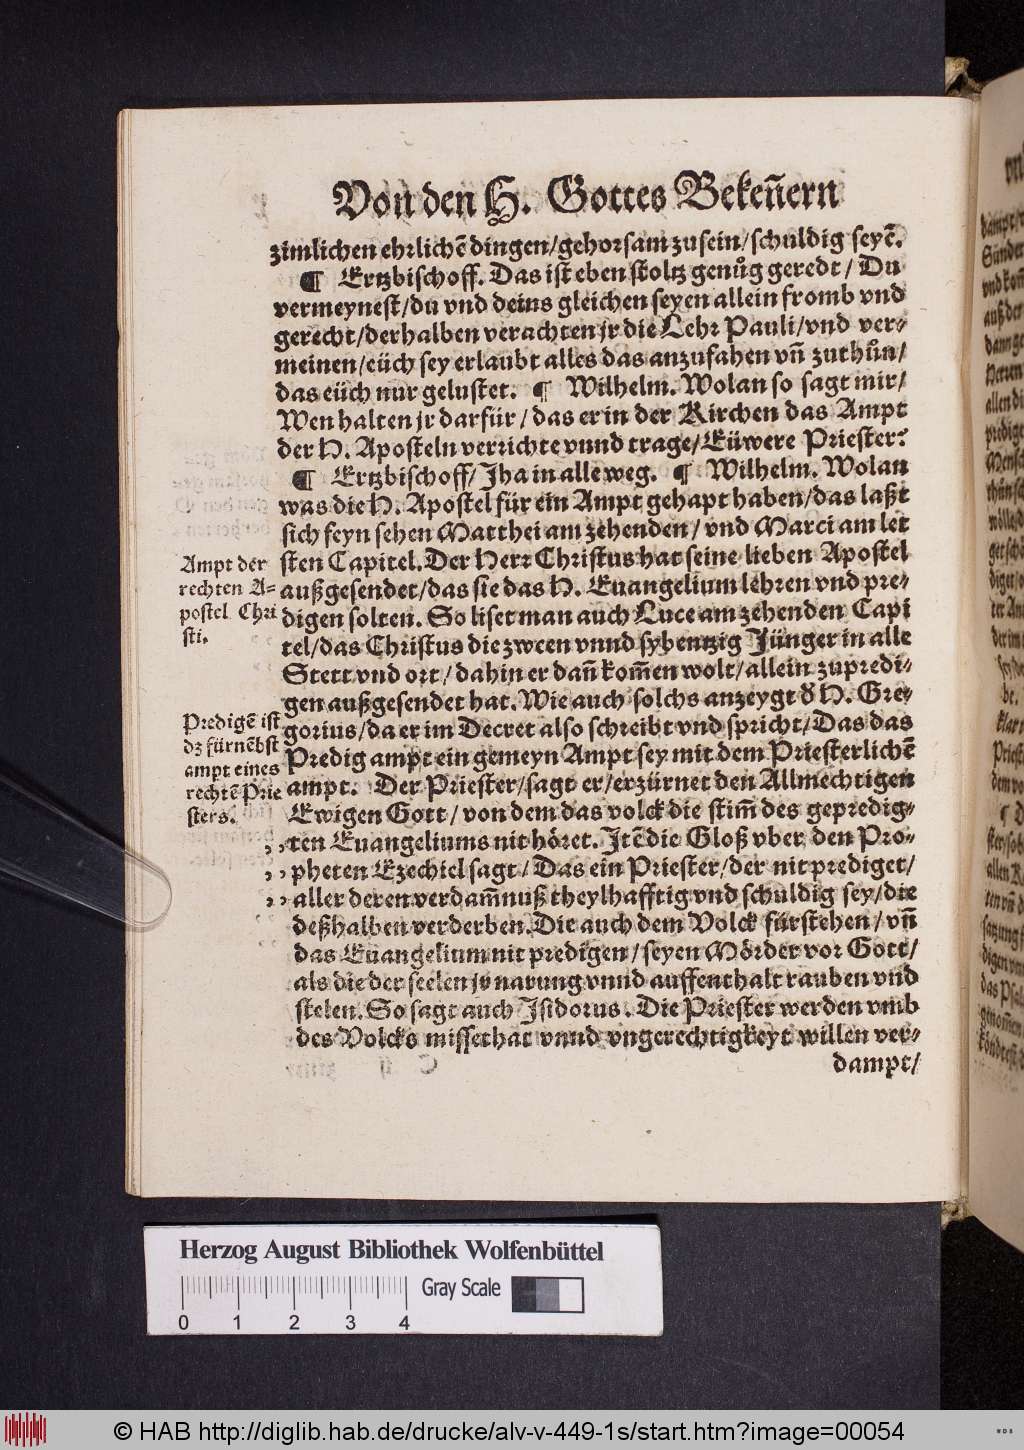 Von den H. Gottes Bekeñern
zimlichen ehrlichẽ dingen/gehorsam zu sein/schuldig seyẽ.
¶ Ertzbischoff. Das ist eben stoltz genůg geredt/ Du
vermeynest/du vnd deins gleichen seyen allein fromb vnd
gerecht/derhalben verachten jr die Lehr Pauli/vnd ver-
meinen/eüch sey erlaubt alles das anzufahen vñ zuthůn/
das eüch nur gelustet. ¶ Wilhelm. Wolan so sagt mir/
Wen halten jr darfür/ das er in der Kirchen das Ampt
der H. Aposteln verrichte vnnd trage/Eüwere Priester?
¶ Ertzbischoff/Jha in alle weg. ¶ Wilhelm. Wolan
was die H. Apostel für ein Ampt gehapt haben/das laßt
sich feyn sehen Matthei am zehenden/ vnd Marci am let
sten Capitel. Der Herr Christus hat seine lieben Apostel
außgesendet/das sie das H. Euangelium lehren vnd pre-
digen solten. So liset man auch Luce am zehenden Capi
tel/das Christus die zween vnnd sybentzig Jünger in alle
Stett vnd ort/ dahin er dañ kom̃en wolt/allein zupredi-
gen außgesendet hat. Wie auch solchs anzeygt ð H. Gre-
gorius/da er im Decret also schreibt vnd spricht/Das das
Predig ampt ein gemeyn Ampt sey mit dem Priesterlichẽ
ampt. Der Priester/sagt er/erzürnet den Allmechtigen
Ewigen Gott/ von dem das volck die stim̃ des gepredig-
ten Euangeliums nit höret. Jtẽ die Gloß vber den Pro-
pheten Ezechiel sagt/ Das ein Priester/der nit prediget/
aller deren verdam̃nuß theylhafftig vnd schuldig sey/die
deßhalben verderben. Die auch dem Volck fürstehen/ vñ
das Euangelium nit predigen/ seyen Mörder vor Gott/
als die der seelen jr narung vnnd auffenthalt rauben vnd
stelen. So sagt auch Jsidorus. Die Priester werden vmb
des Volcks missethat vnnd vngerechtigkeyt willen ver-
dampt/
Ampt der
rechten A-
postel Chri
sti.
Predigẽ ist
dz fürnẽbst
ampt eines
rechtẽ Prie
sters.
Herzog August Bibliothek Wolfenbüttel
Gray Scale
0 1 2 3 4
© HAB http://diglib.hab.de/drucke/alv-v-449-1s/start.htm?image=00054